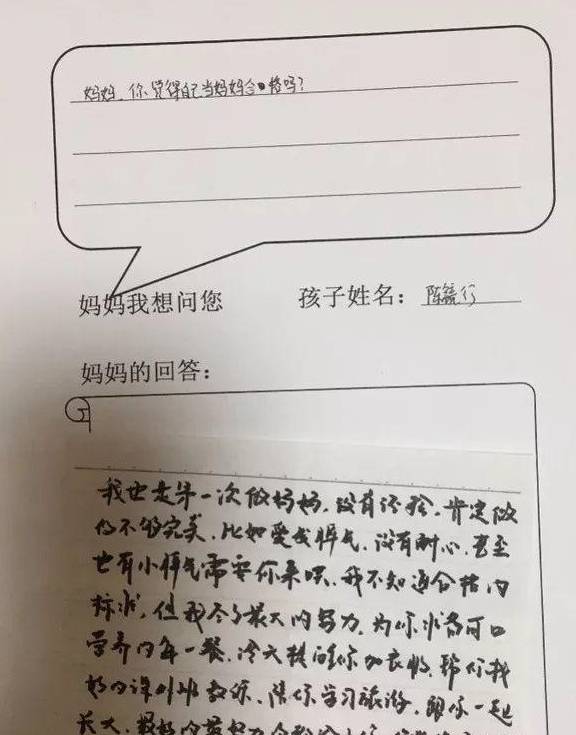 妈妈、你觉得自己当妈妈合格吗？
妈妈我想问您 孩子姓名：陈毓行
妈妈的回答：
我也是第一次做妈妈，没有经验，肯定做
的不够完美，比如爱发脾气，没有耐心，甚至
也有小脾气需要你来哄，我不知道合格的
标准，但我尽了最大的努力，为你准备可口
营养的每一餐，冷天提醒你加衣服，帮你找
好的课外班教练、陪你学习旅游，跟你一起
长大，